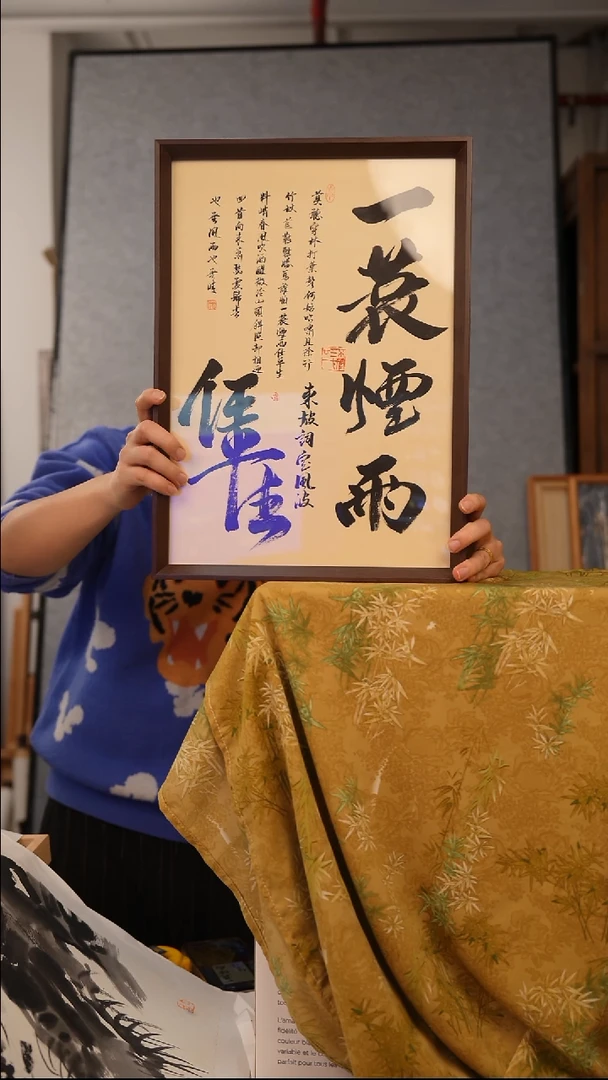 一蓑煙雨
任平生
莫聽穿林打葉聲何妨吟嘯且徐行
竹杖芒鞋輕勝馬誰怕一蓑煙雨任平生
料峭春風吹酒醒微冷山頭斜照卻相迎
回首向來蕭瑟處歸去
也無風雨也無晴
東坡詞定風波
fidélité
couleur
variable et le
parfait pour tous les